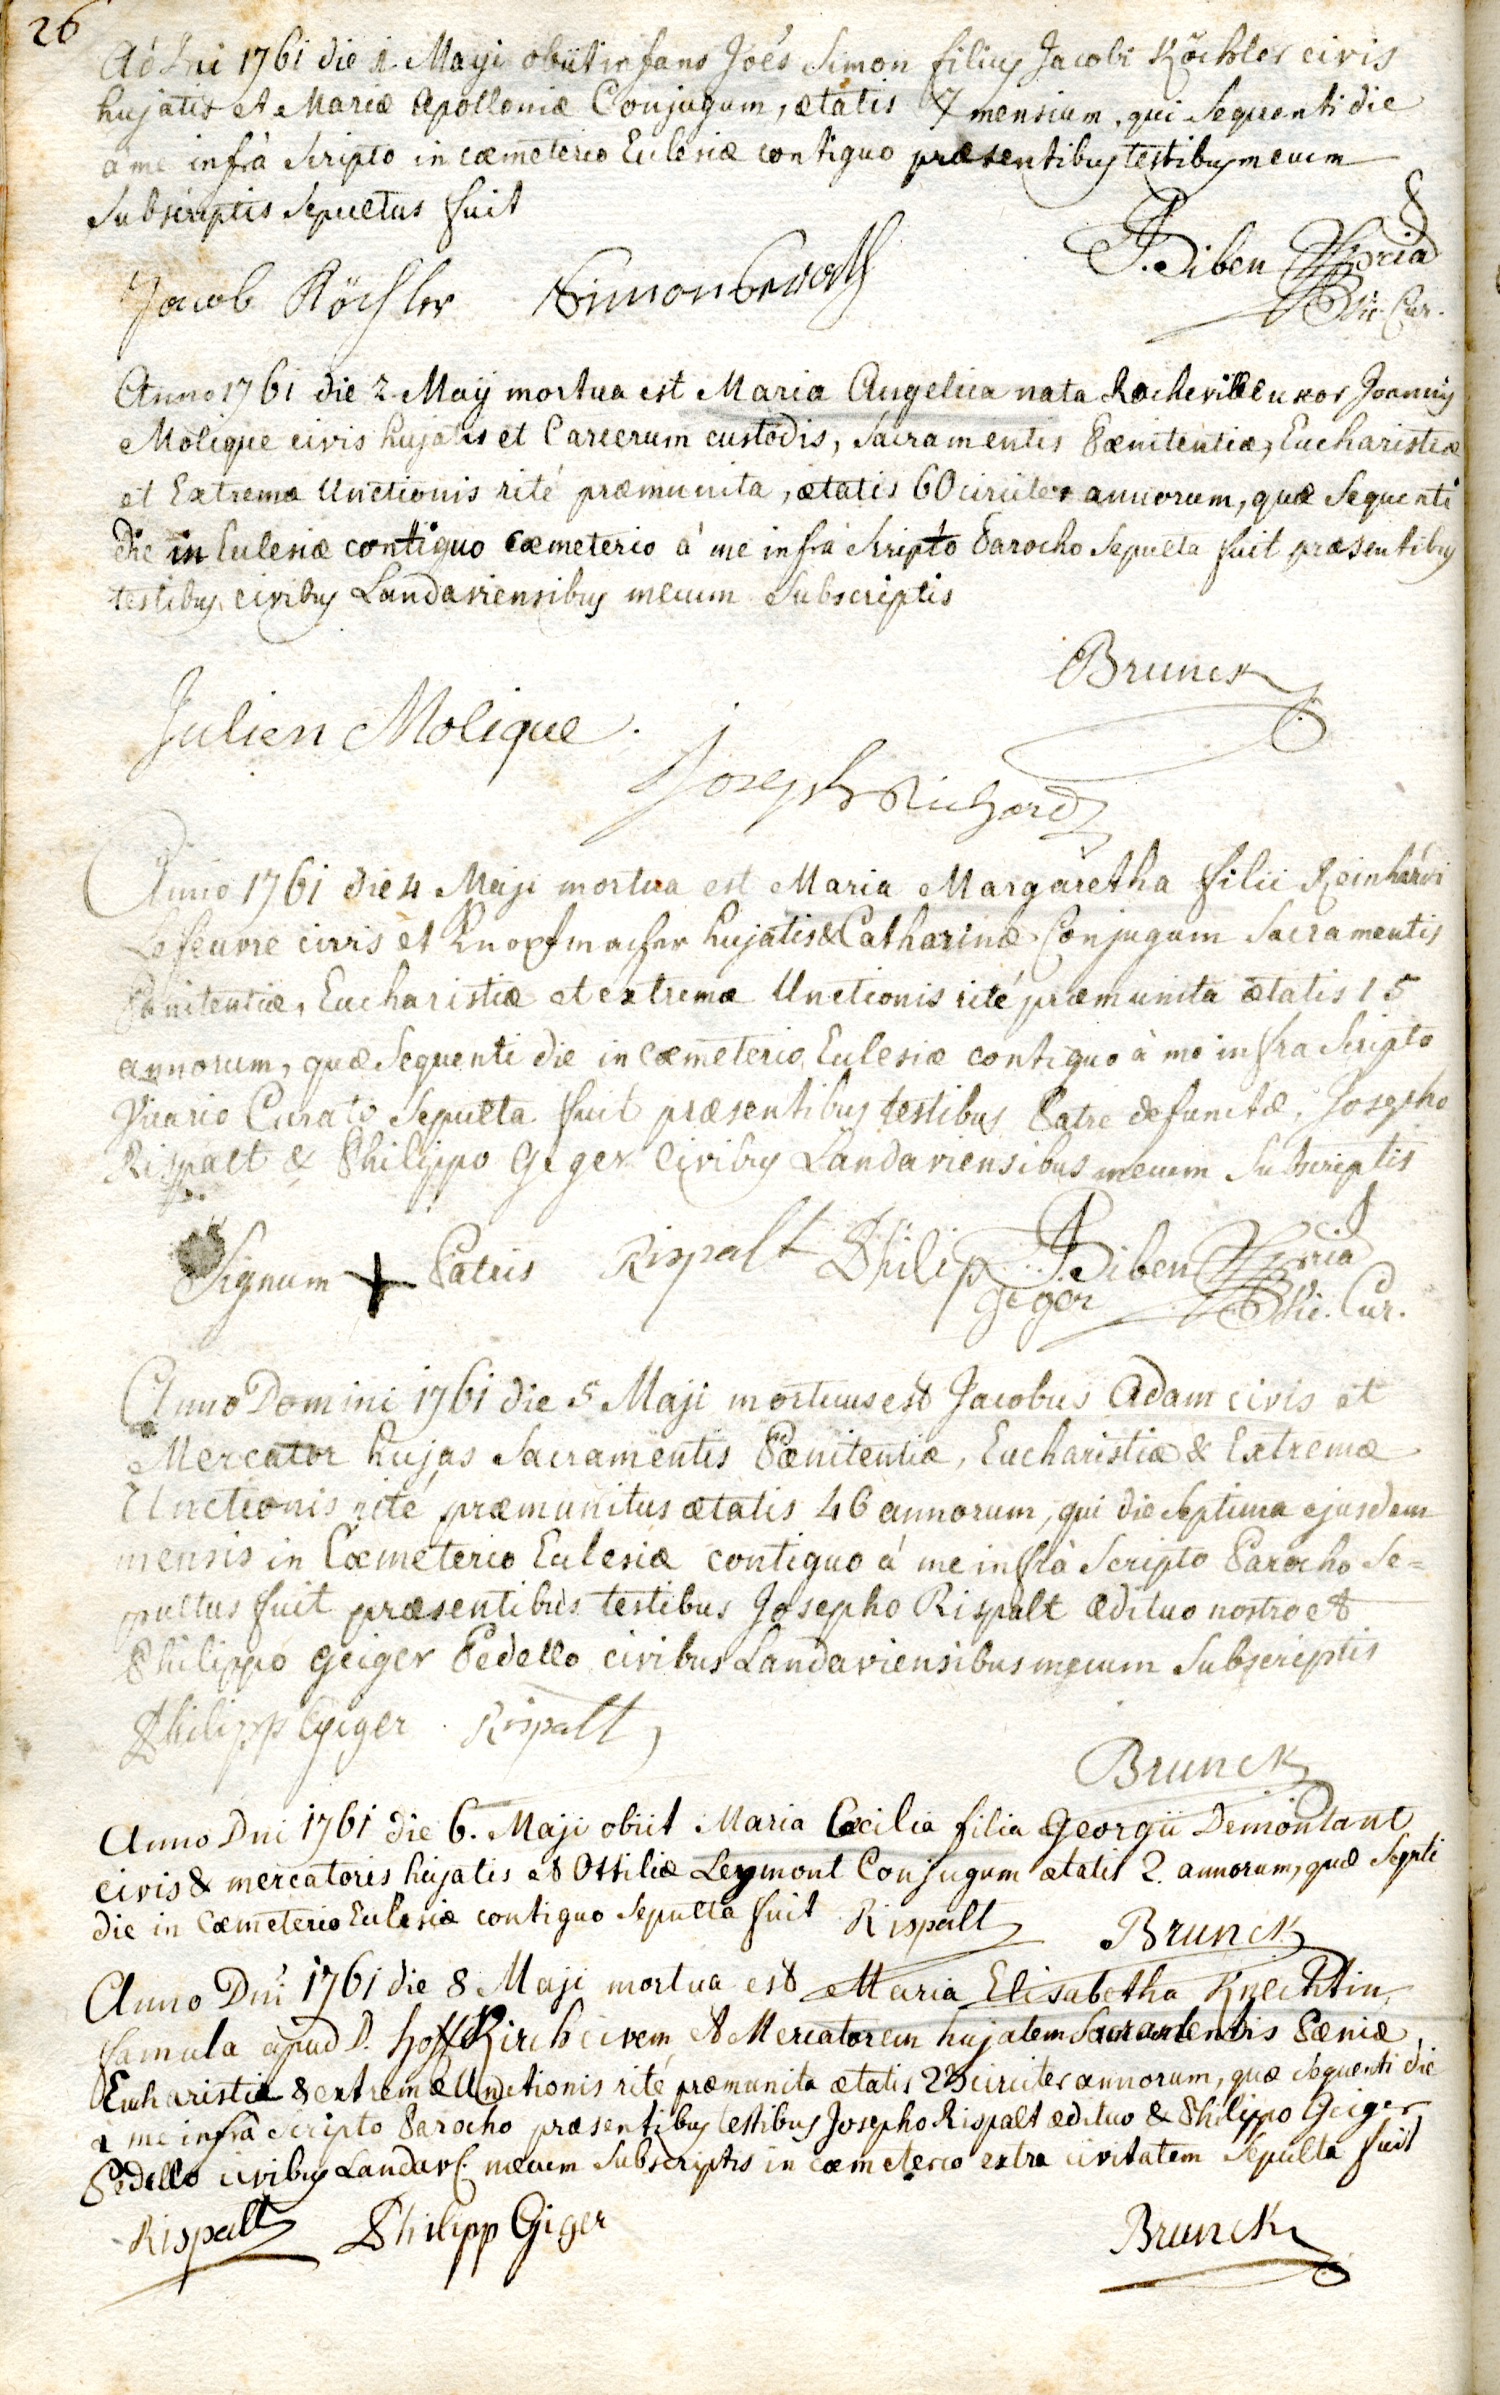 26
Aō Dni 1761 die 1 Maji obiit infans Joēs Simon filius Jacobi Köchler civis
hujatis et Mariæ Apolloniæ Conjugum, ætatis 7 mensium, qui Sequenti die
a me infrà Scripto in cæmeterio Ecclesiæ contiguo præsentibus testibus mecum
Subscriptis Sepultus fuit
Jacob Köchler Simon P. Biben
Vic. Cur.
Anno 1761 die 2 Maij mortua est Maria Angelica nata Rocheville uxor Joannis
Molique civis hujatis et Carcerum custodis, Sacramentis Pænitentiæ, Eucharistiæ
et Extremæ Unctionis rité præmunita, ætatis 60 circiter annorum, quæ Sequenti
die in Ecclesiæ contiguo cæmeterio à me infrà Scripto Parocho Sepulta fuit præsentibus
testibus civibus Landaviensibus mecum Subscriptis
Brunck
Julien Molique.
Joseph Richard
Anno 1761 die 4 Maji mortua est Maria Margaretha filii Reinhardi
Lefeuvre civis et Knopfmacher hujatis & Catharinæ Conjugum Sacramentis
Pænitentiæ, Eucharistiæ et extremæ Unctionis rité præmunita ætatis 15
annorum, quæ Sequenti die in Cæmeterio Ecclesiæ contiguo à me infra Scripto
Vicario Curato Sepulta fuit præsentibus testibus Patre defunctæ, Josepho
Rispalt & Philippo Geger Civibus Landaviensibus mecum Subscriptis
Signum + Patris Rispalt Philip P. Biben
geger Vic. Cur.
Anno Domini 1761 die 5 Maji mortuus est Jacobus Adam civis et
Mercator hujas Sacramentis Pænitentiæ, Eucharistiæ & Extremæ
Unctionis rité præmunitus ætatis 46 annorum, qui die Septima ejusdem
mensis in Cæmeterio Ecclesiæ contiguo à me infrà Scripto Parocho Se=
pultus fuit præsentibus testibus Josepho Rispalt ædituo nostro et
Philippo Geiger Pedello civibus Landaviensibus mecum Subscriptis
Philipp Geiger Rispalt
Brunck
Anno Dni 1761 die 6. Maji obiit Maria Cæcilia filia Georgii Demontant
civis & mercatoris hujatis et Ottiliæ Leymont Conjugum ætatis 2. annorum, quæ Seqti
die in Cæmeterio Ecclesiæ contiguo Sepulta fuit Rispalt Brunck
Anno Dni 1761 die 8 Maji mortua est Maria Elisabetha Knechtin
famula apud D. Hoffkirch civem et Mercatorem hujatem Sacramentis Pæniæ,
Eucharistiæ & extremæ Unctionis rité præmunita ætatis 23 circiter annorum, quæ Sequenti die
a me infrà Scripto Parocho præsentibus testibus Josepho Rispalt ædituo & Philippo Geiger
Pedello civibus Landav. mecum Subscriptis in cæmeterio extra civitatem Sepulta fuit
Rispalt Philipp Geiger Brunck